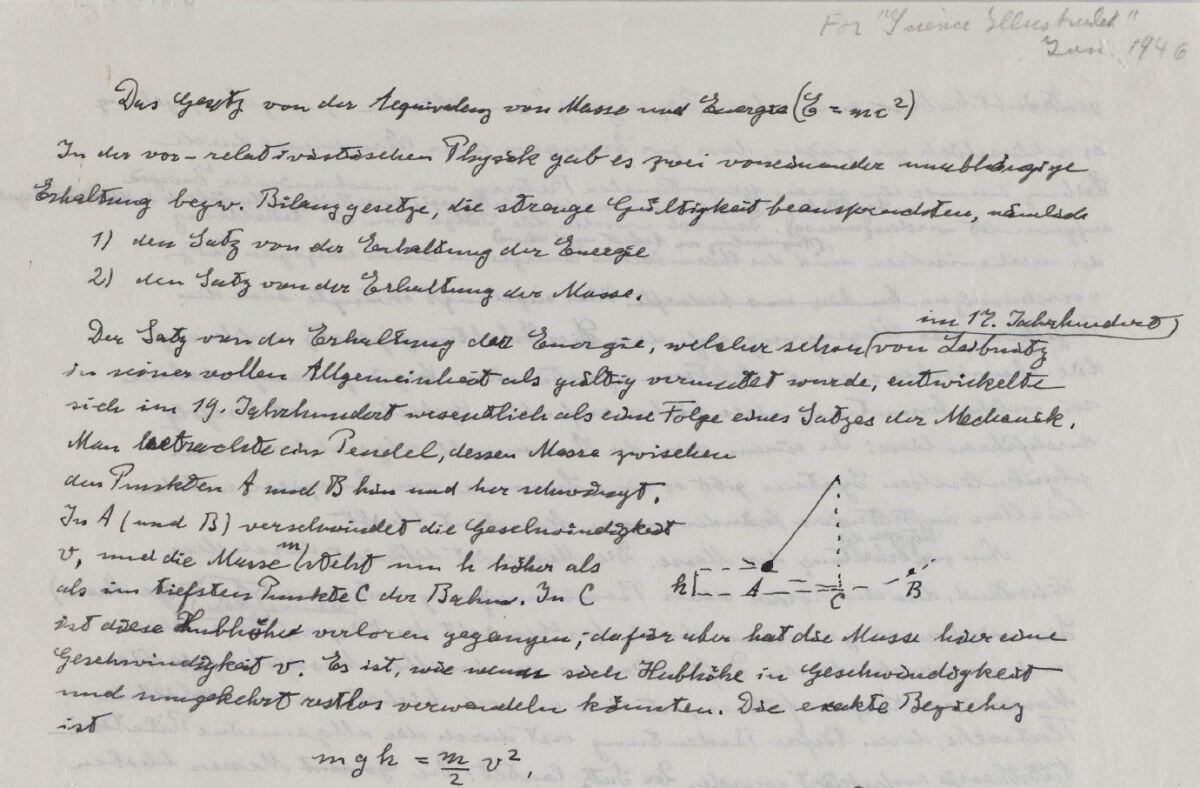 For "Science Illustrated"
Jan. 1946
Das Gesetz von der Aequivalenz von Masse und Energie (E = mc²)
In der vor-relativistischen Physik gab es zwei voneinander unabhängige
Erhaltung bezw. Bilanzgesetze, die strenge Gültigkeit beanspruchten, nämlich
1) den Satz von der Erhaltung der Energie
2) den Satz von der Erhaltung der Masse.
im 17. Jahrhundert
Der Satz von der Erhaltung der Energie, welcher schon von Leibnitz
in seiner vollen Allgemeinheit als gültig vermutet wurde, entwickelte
sich im 19. Jahrhundert wesentlich als eine Folge eines Satzes der Mechanik.
Man betrachte ein Pendel, dessen Masse zwischen
den Punkten A und B hin und her schwingt.
In A (und B) verschwindet die Geschwindigkeit
v, und die Masse m steht um h höher als
als im tiefsten Punkte C der Bahn. In C
h A C B
ist diese Hubhöhe verloren gegangen; dafür aber hat die Masse hier eine
Geschwindigkeit v. Es ist, wie wenn sich Hubhöhe in Geschwindigkeit
und umgekehrt restlos verwandeln könnten. Die exakte Beziehung
ist
mgh = m/2 v²,